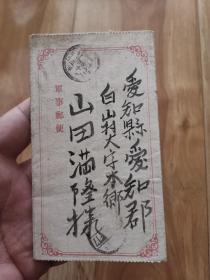 愛知縣愛知郡
白山村大字本郷
山田満隆様
軍事郵便